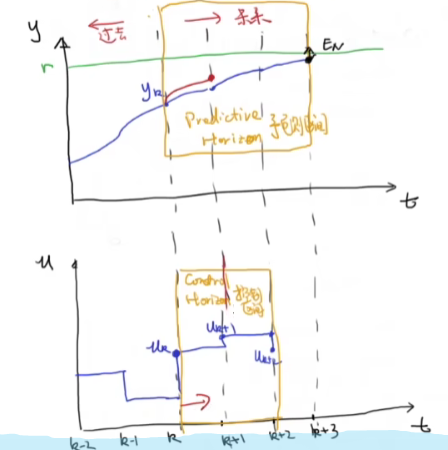 y
过去
未来
r
E_N
y_k
Predictive
Horizon 预测区间
t
u
Control
Horizon 控制
区间
u_k
u_k+1
u_k+2
k-2 k-1 k k+1 k+2 k+3
t